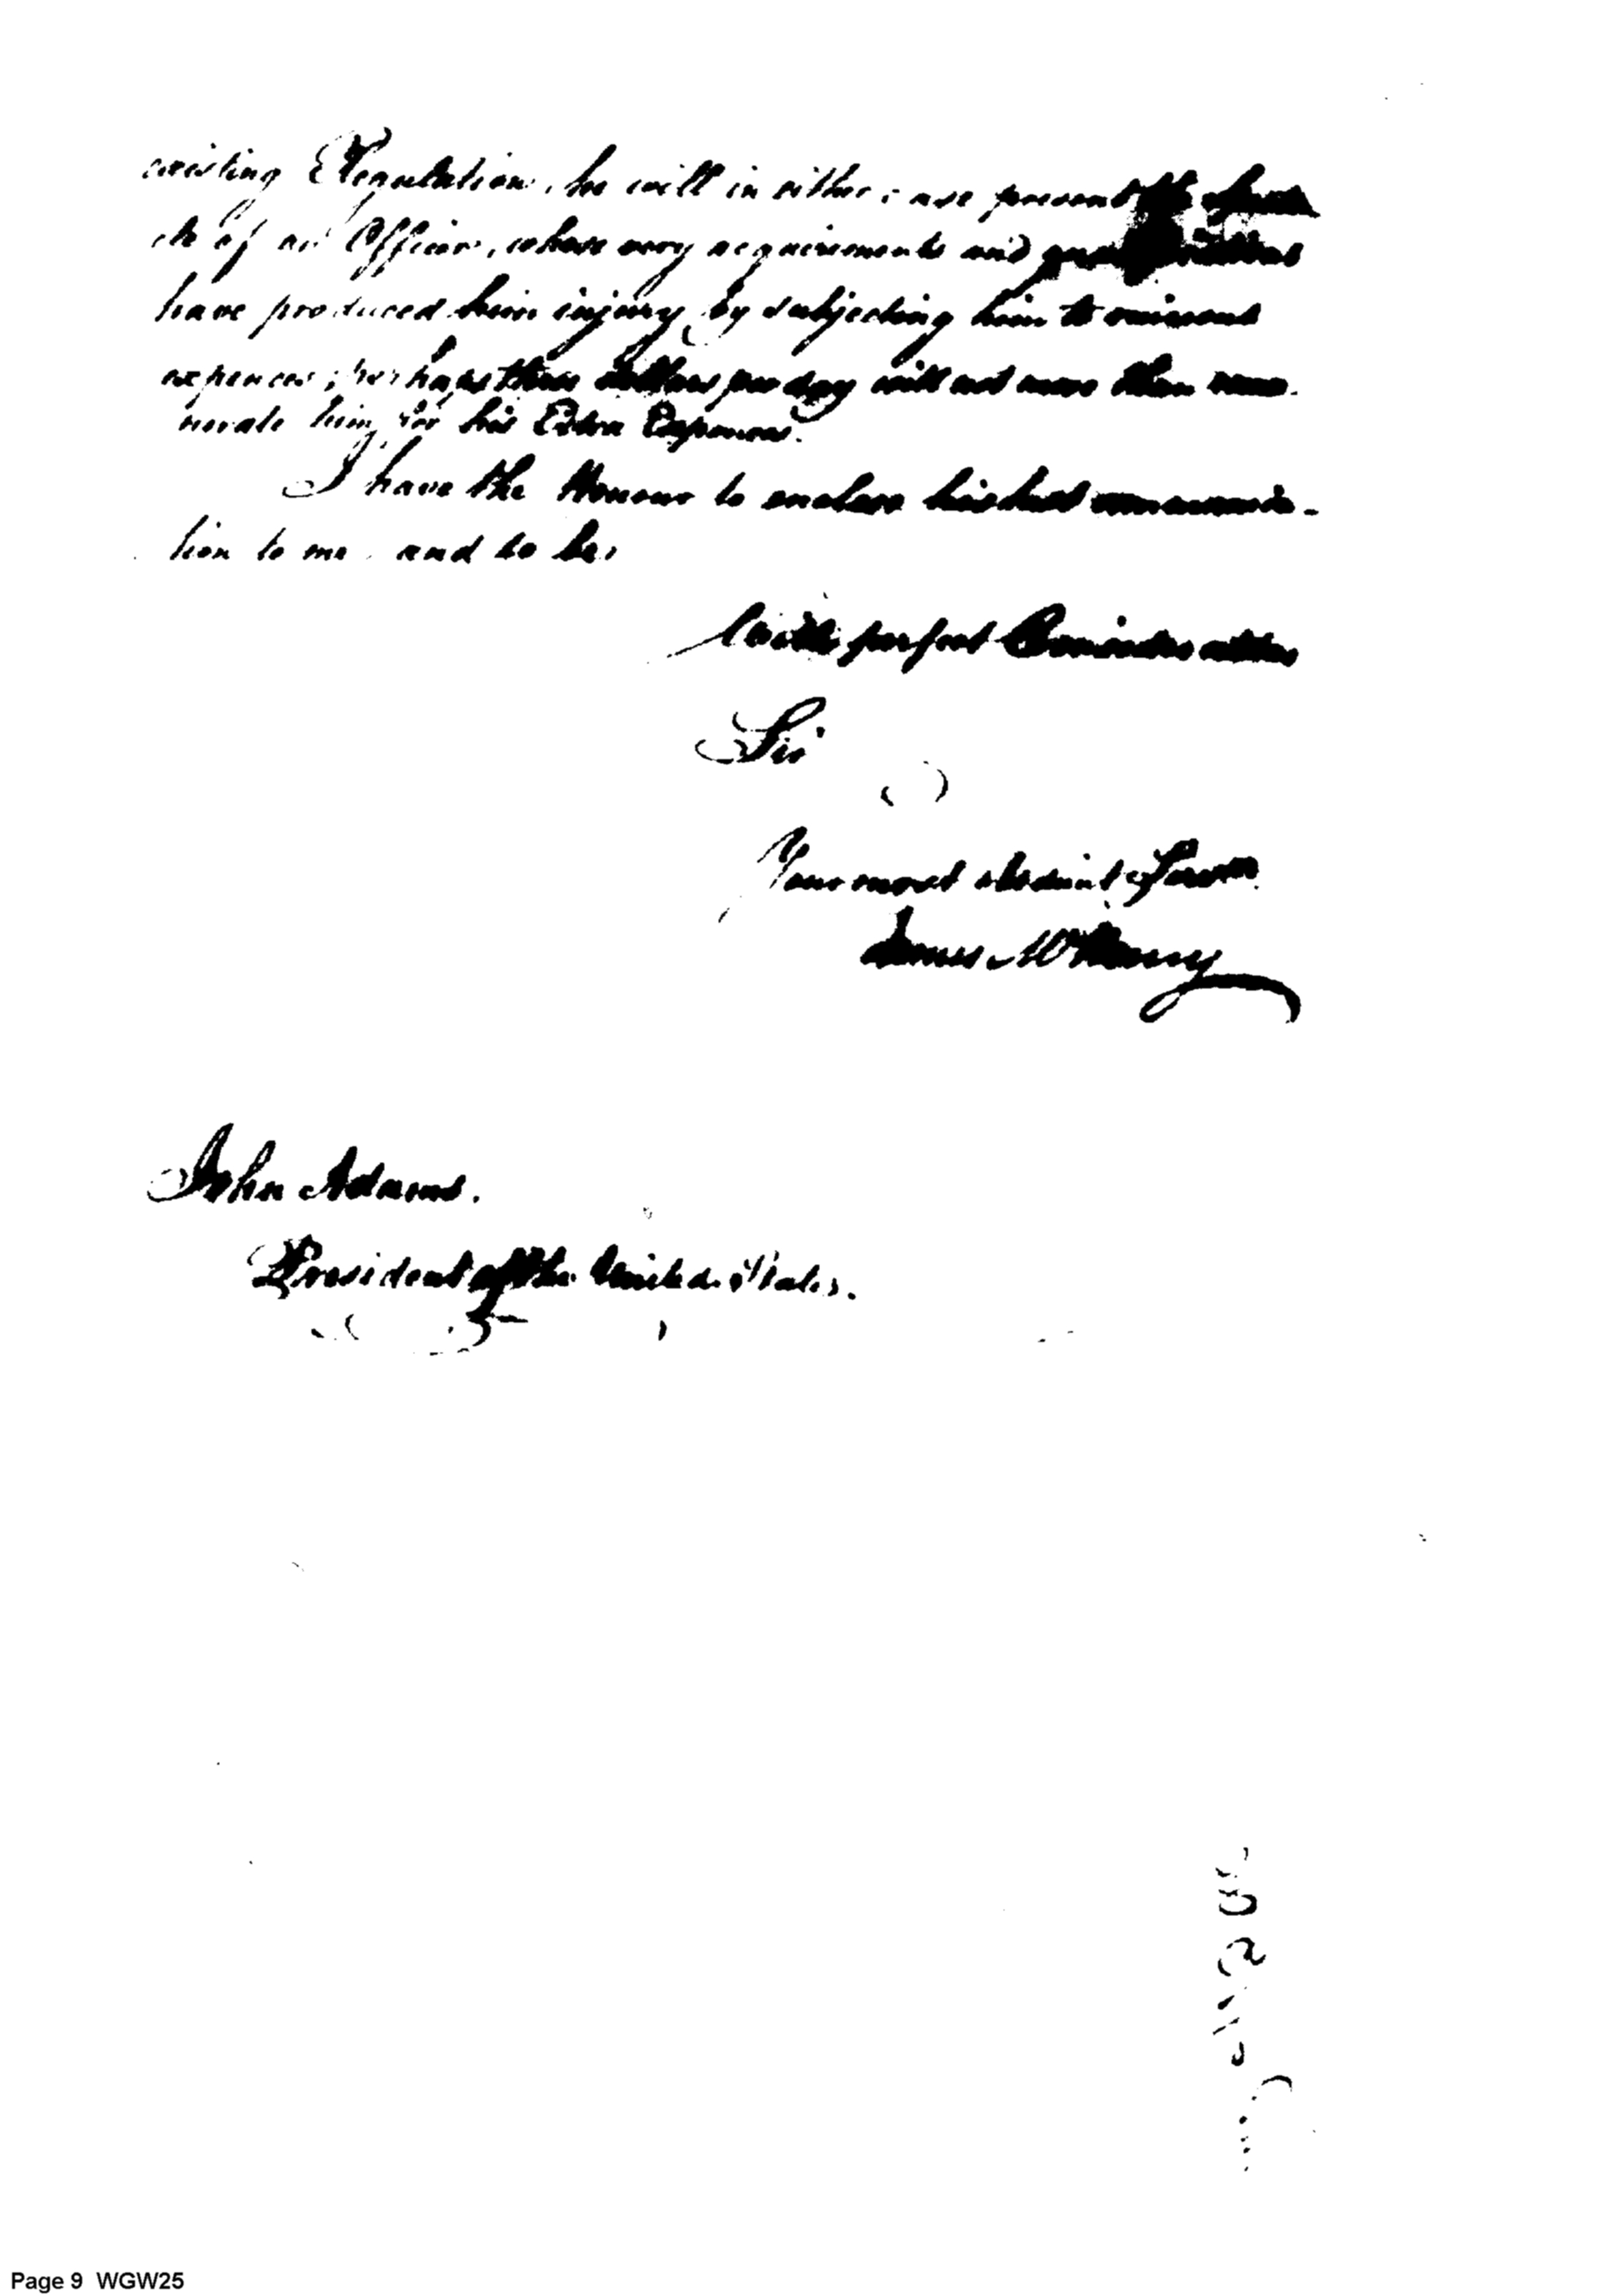 existing Regulation, he will in either case present the
cle of an Officer, whose very acquirements and
have produced him injury, by subjecting him to ruinous
expences; perhaps three dollars per day will not more than remu-
nerate him for his Extra Expences.
I have the Honour to enclose his last communica-
tion to me and to be,
With perfect
Sir
Your most obedient Servt.
James McHenry
John Adams.
President of the United States.
Page 9 WGW25